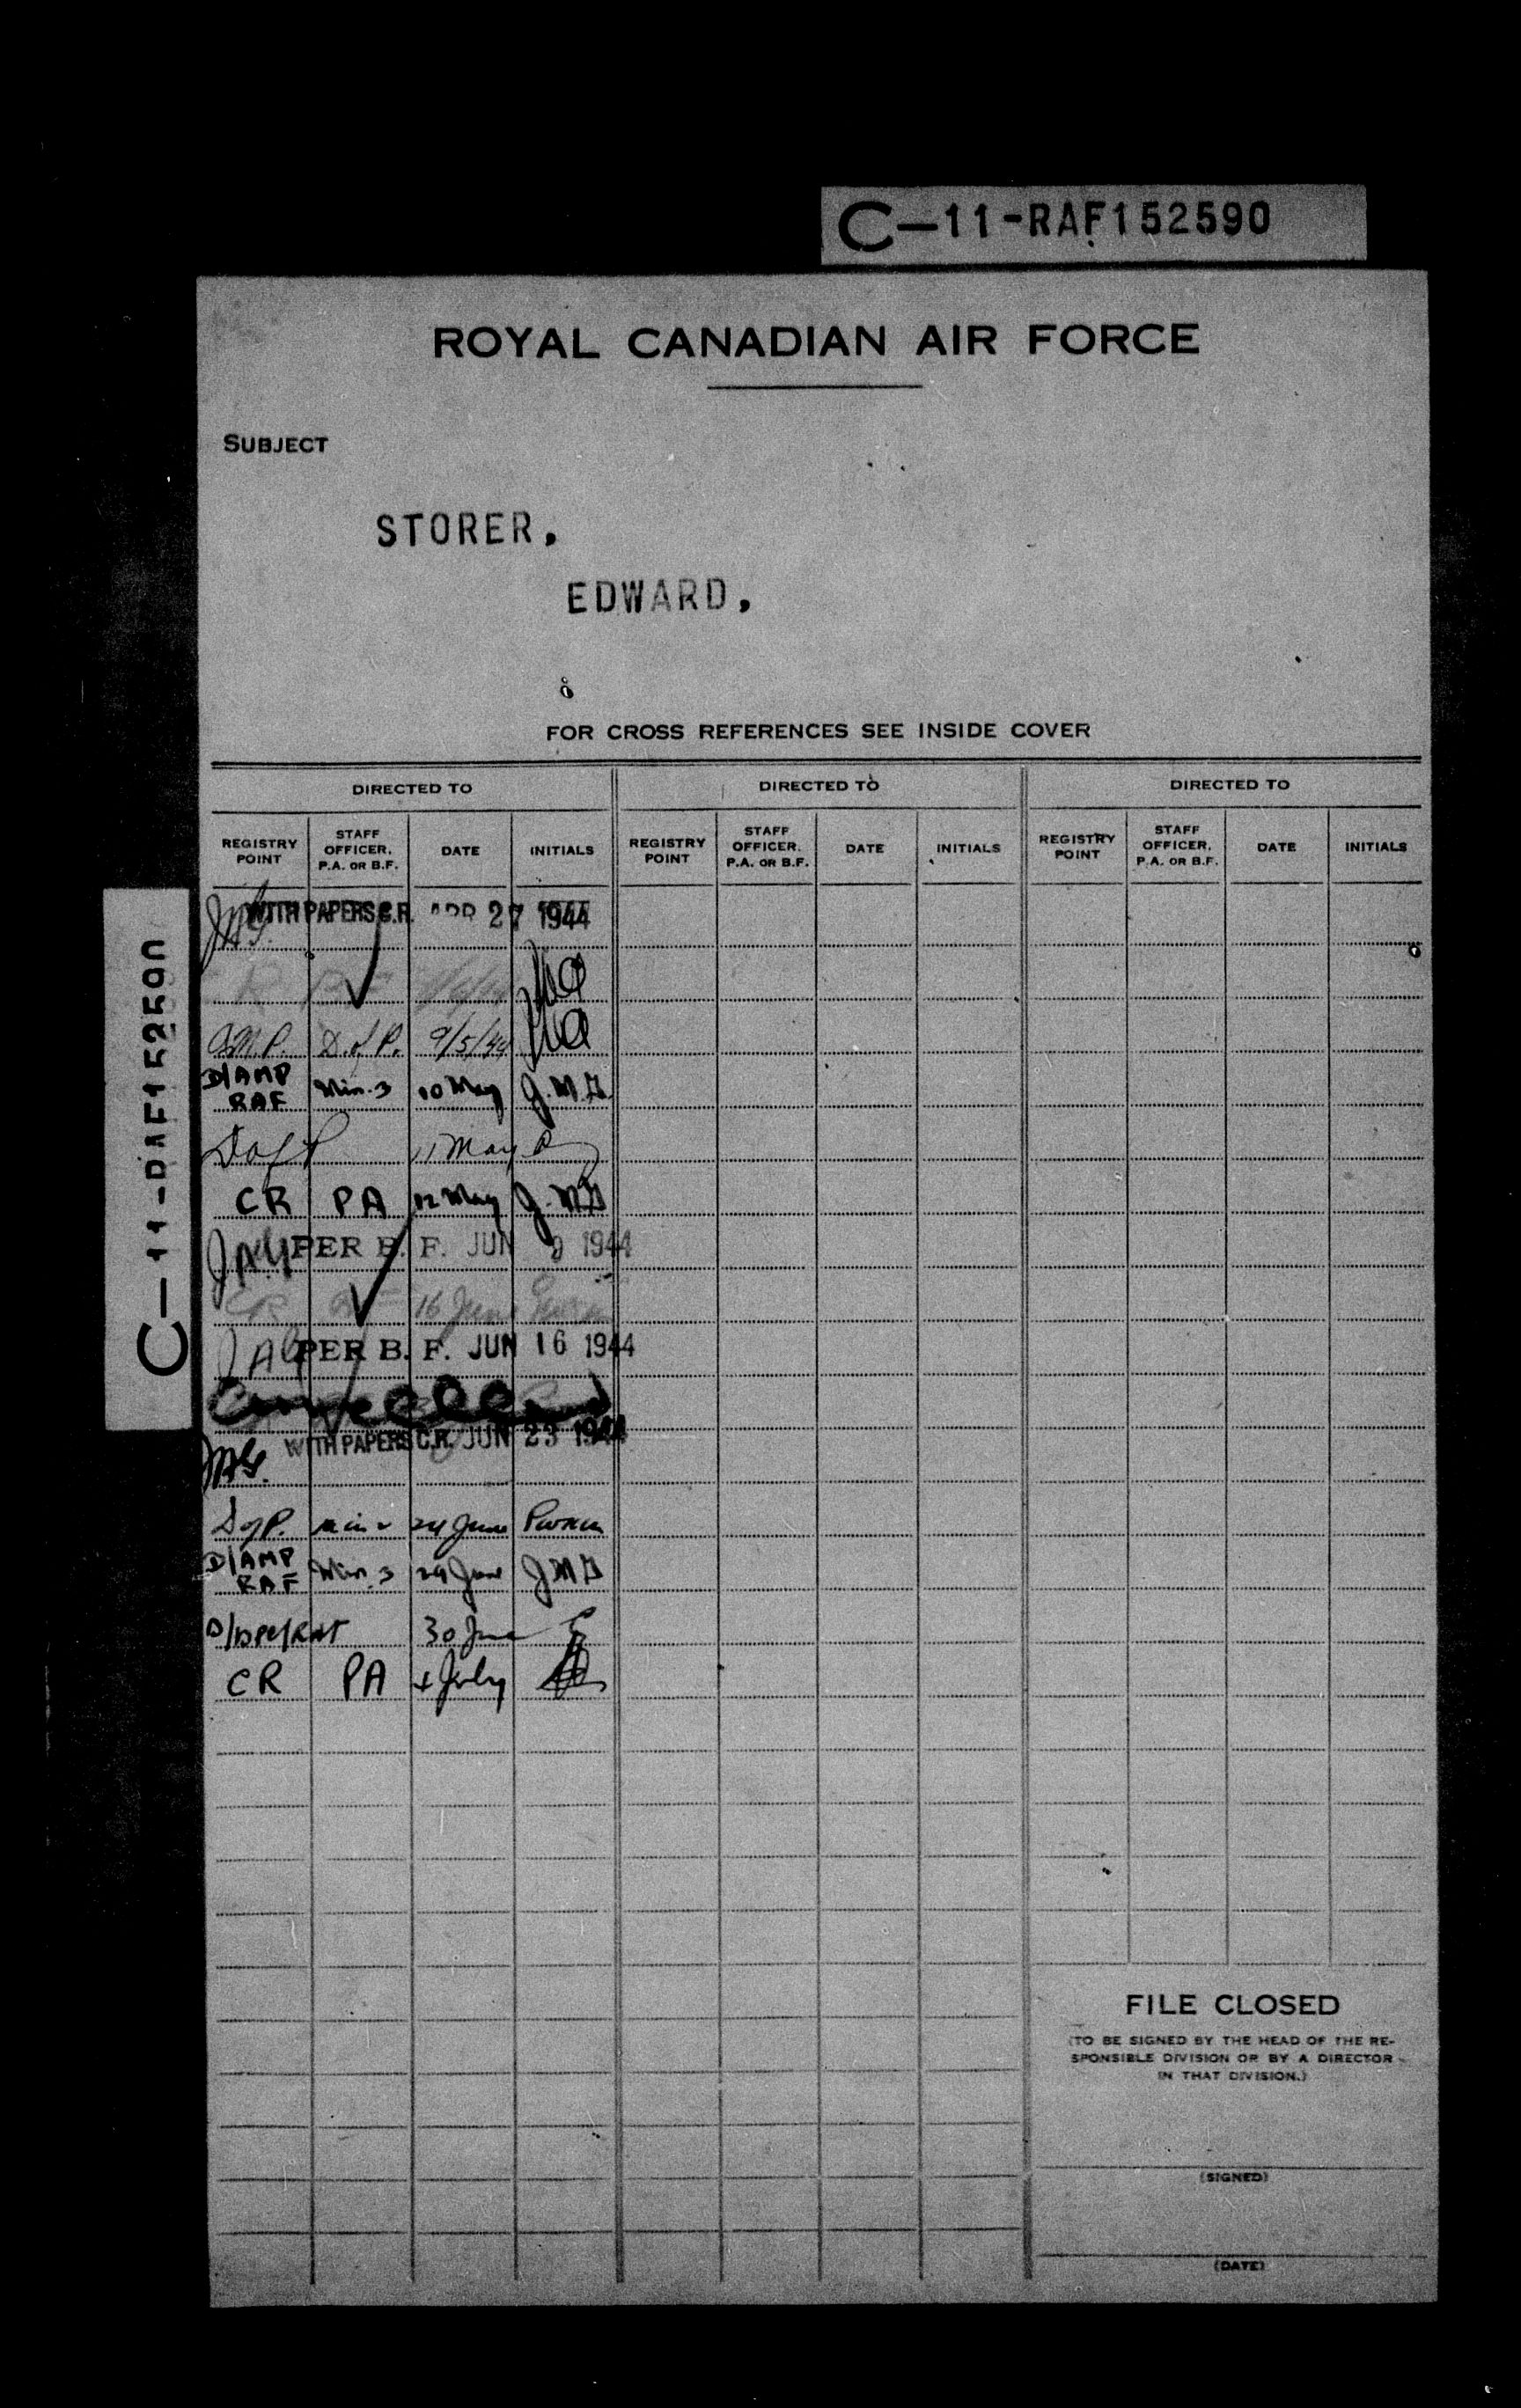 C-11-RAF152590
ROYAL CANADIAN AIR FORCE
SUBJECT
STORER,
EDWARD,
FOR CROSS REFERENCES SEE INSIDE COVER
DIRECTED TO DIRECTED TO DIRECTED TO
REGISTRY POINT STAFF OFFICER, P.A. OR B.F. DATE INITIALS REGISTRY POINT STAFF OFFICER, P.A. OR B.F. DATE INITIALS REGISTRY POINT STAFF OFFICER, P.A. OR B.F. DATE INITIALS
WITH PAPERS C.R. APR 27 1944
A.M.P. D.of P. 9/5/44
D/AMP RAF Min. 3 10 May J.M.G.
D of P 11 May
CR PA 12 May J.M.G
PER B. F. JUN 1944
16 June
PER B. F. JUN 16 1944
Cancelled
WITH PAPERS C.R. JUN 23 1944
JAG.
D of P. min 24 June
D/AMP RAF Min. 3 29 June JMG
30 June
CR PA 4 July
C-11-RAF152590
FILE CLOSED
(TO BE SIGNED BY THE HEAD OF THE RE-
SPONSIBLE DIVISION OR BY A DIRECTOR
IN THAT DIVISION.)
(SIGNED)
(DATE)